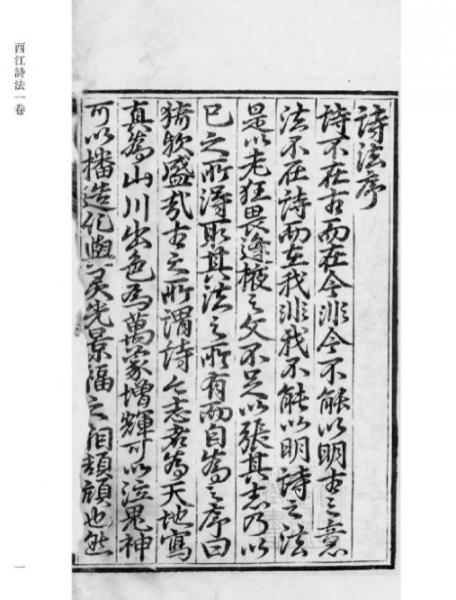 詩法序
詩不在古而在今非今不能以明古之意
法不在詩而在我非我不能以明詩之法
是以老狂畏逢掖之文不足以張其志乃以
已之所得取其法之所有而自為之序曰
猗欤盛哉古之所謂詩者為天地寫
真為山川出色為萬增輝可以泣鬼神
可以播造化與光景福之相頡頏也然
西江詩法一卷
一